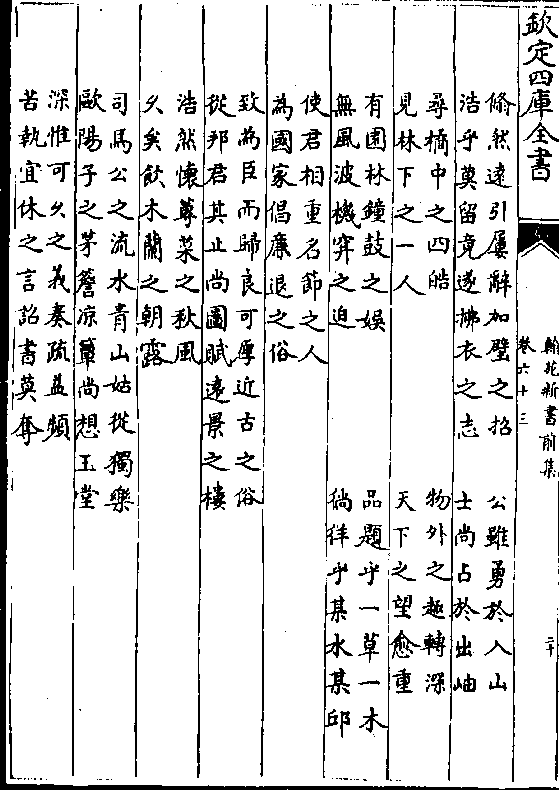 欽定四庫全書
翰苑新書前集
卷六十三
二十
翛然遠引屢辭加璧之招
浩乎莫留竟遂拂衣之志
公雖勇於入山
士尚占於出岫
尋橘中之四皓
見林下之一人
物外之趣轉深
天下之望愈重
有園林鐘鼓之娛
無風波機穽之迫
品題乎一草一木
徜徉乎某水某邱
使君相重名節之人
為國家倡廉退之俗
致為臣而歸良可厚近古之俗
從邦君其止尚圖賦遠景之樓
浩然懷蓴菜之秋風
乆矣飲木蘭之朝露
司馬公之流水青山姑從獨樂
歐陽子之茅簷凉簟尚想玉堂
深惟可乆之義奏疏益頻
苦執宜休之言詔書莫奪